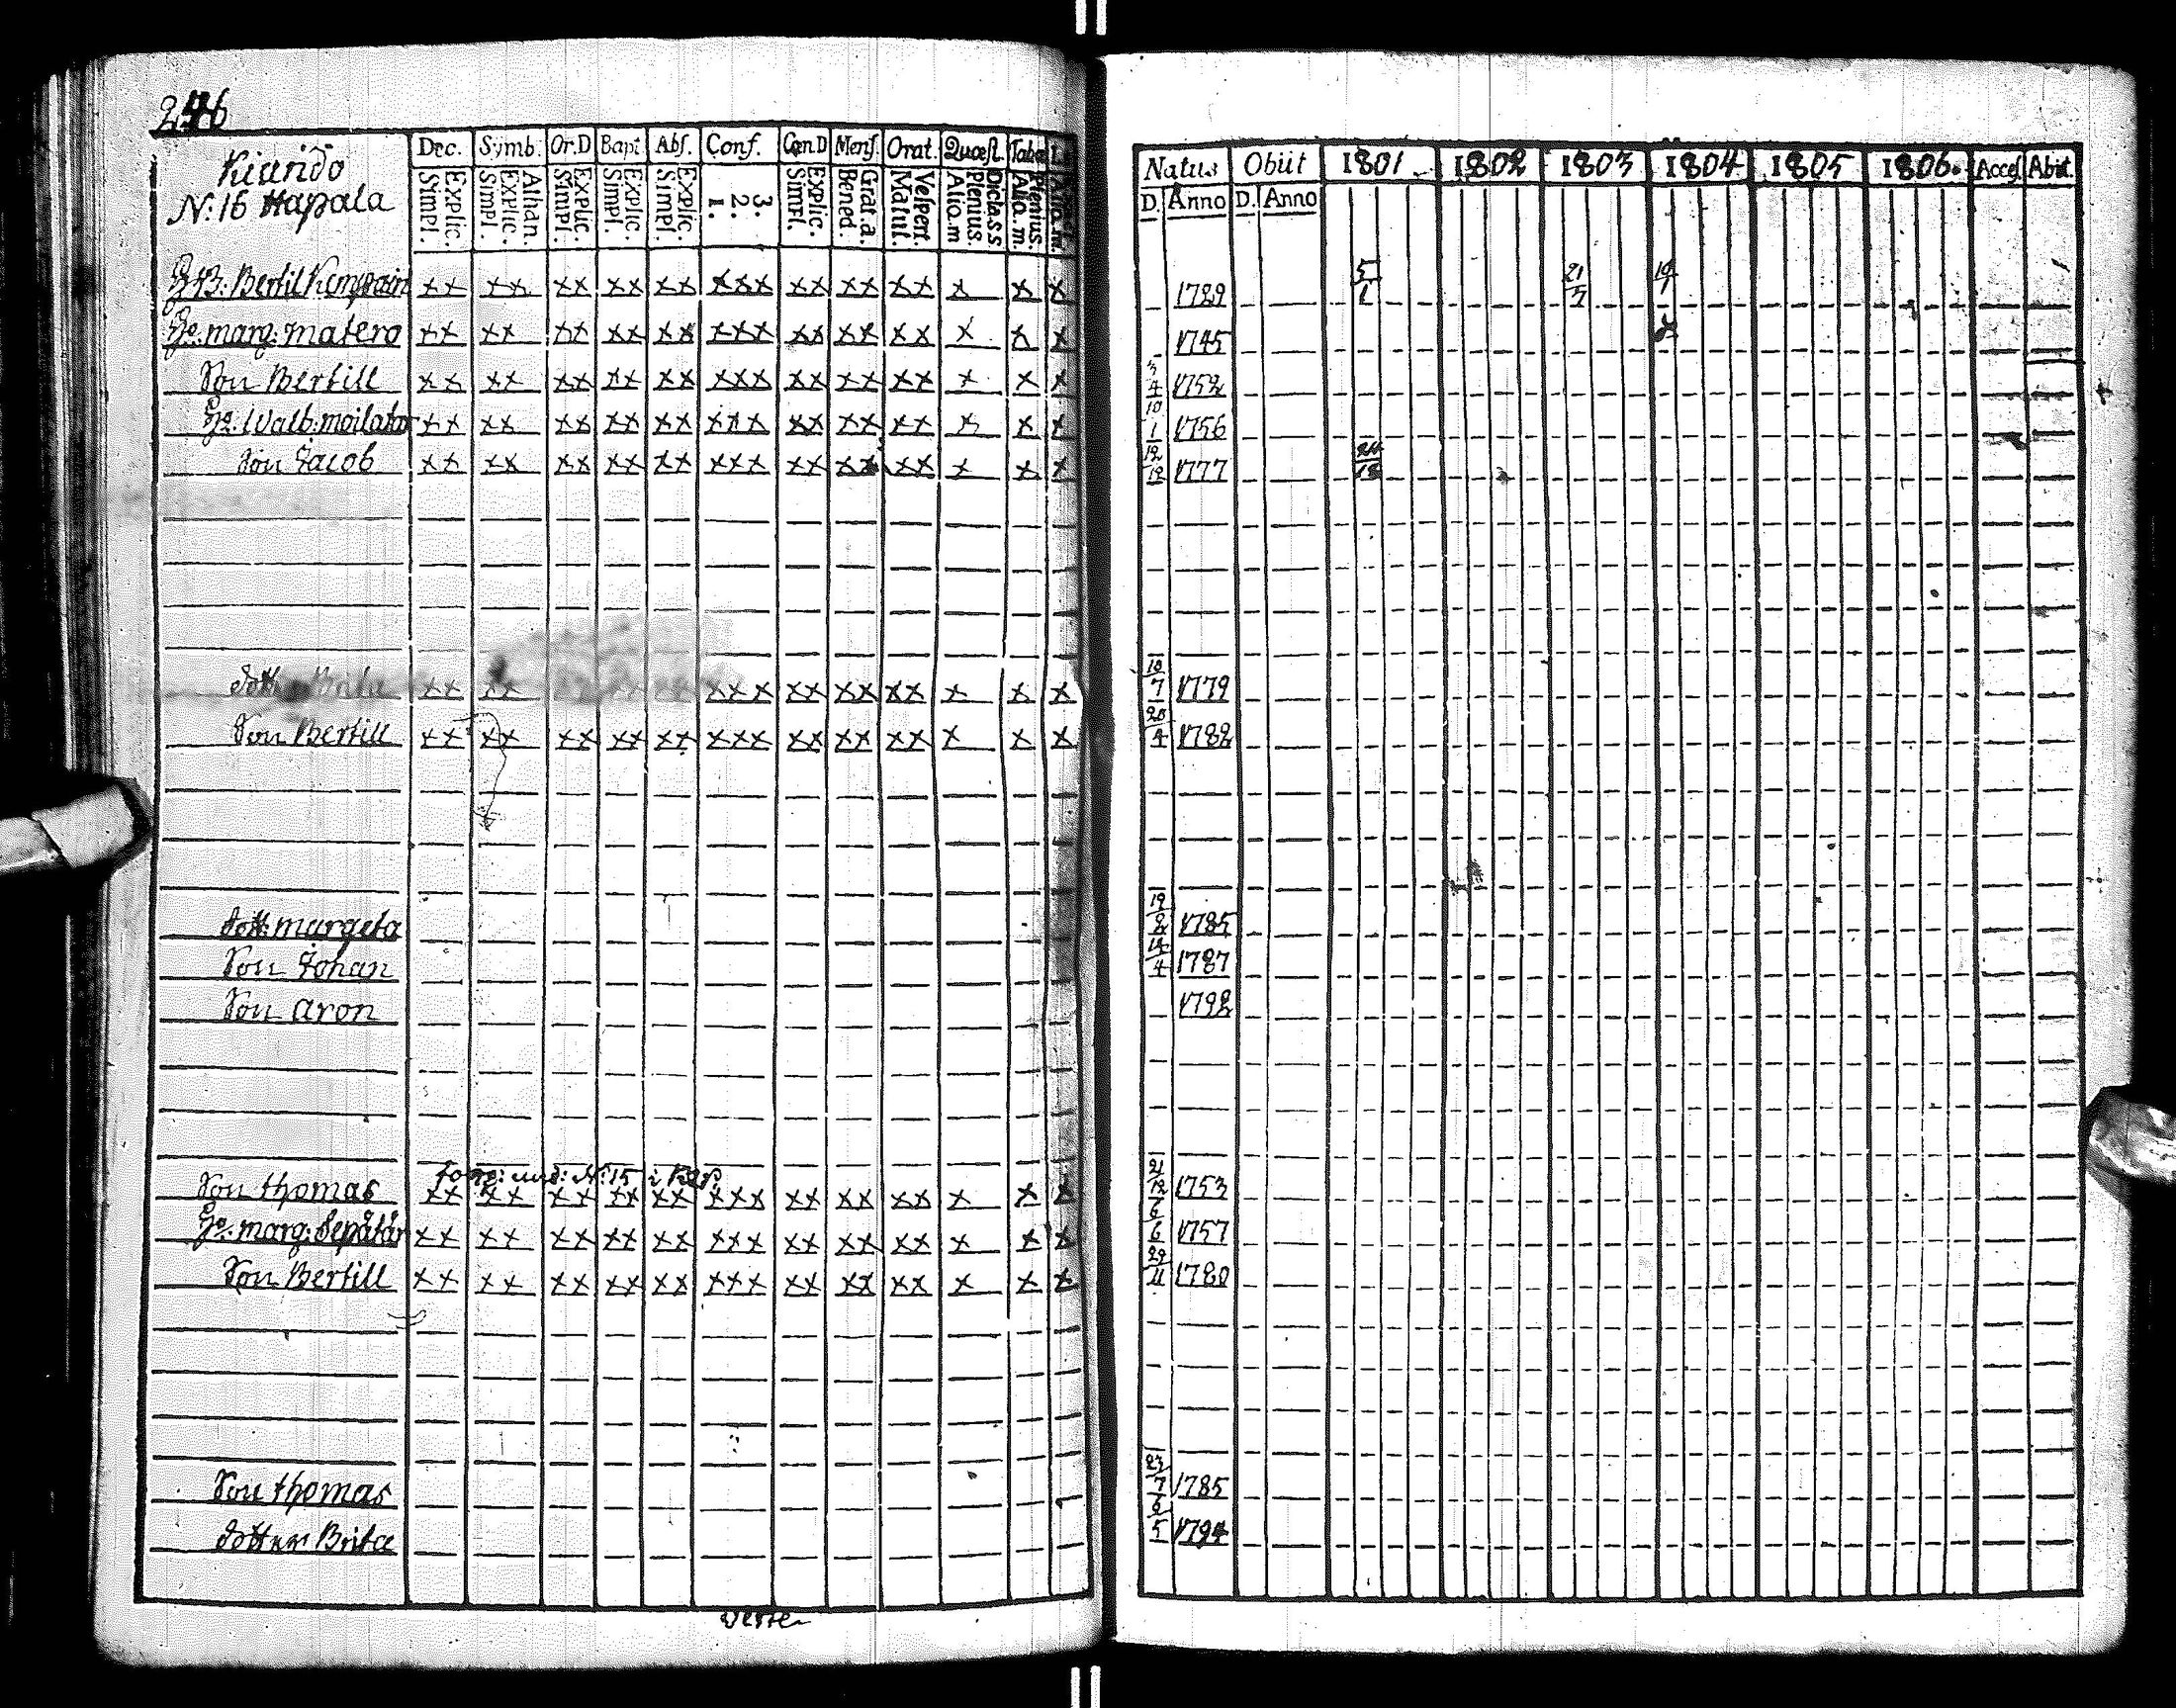 246
Kiurido
N:16 Hapala
Dec. Symb. Or.D Bapt Abs. Conf. Cœn.D Mens. Orat. Quæst. Taba
Explic. Simpl. Athan. Explic. Simpl. Explic. Simpl. Explic. Simpl. Explic. Simpl. 3. 2. 1. Explic. Simpl. Grat. a. Bened. Vespert. Matut. Dicta s s Plenius. Alio. m Plenius. Alio. m.
Natus Obiit 1801 1802 1803 1804 1805 1806. Acces. Abiit.
D. Anno D. Anno
Bertil Kempain xx xx xx xx xx xxx xx xx xx x x x 1729 5/1 21/7
marg: matero xx xx xx xx xx xxx xx xx xx x x x 1745
Son Bertill xx xx xx xx xx xxx xx xx xx x x x 3/4 1752
Walb: moilator xx xx xx xx xx xxx xx xx xx x x x 10/1 1756
Son Jacob xx xx xx xx xx xxx xx xx xx x x x 12/12 1777
xx xx xx xx xx xxx xx xx xx x x x 18/7 1779
Son Bertill xx xx xx xx xx xxx xx xx xx x x x 20/4 1782
dott: margeta 19/2 1785
Son Johan 4 1787
Son aron 1792
N:15 i
Son thomas xx xx xx xx xx xxx xx xx xx x x x 21/12 1753
marg: Sepätär xx xx xx xx xx xxx xx xx xx x x x 6/6 1757
Son Bertill xx xx xx xx xx xxx xx xx xx x x x 29/11 1780
Son thomas 23/7 1785
dotter Brita 6/5 1794